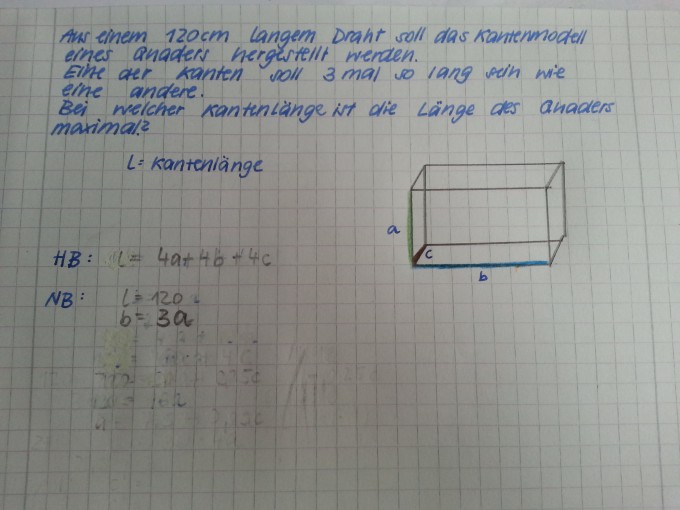 Aus einem 120cm langem Draht soll das Kantenmodell
eines Quaders hergestellt werden.
Eine der Kanten soll 3 mal so lang sein wie
eine andere.
Bei welcher Kantenlänge ist die Länge des Quaders
maximal?
L= Kantenlänge
a
c
b
HB: L= 4a+4b+4c
NB: L=120
b= 3a